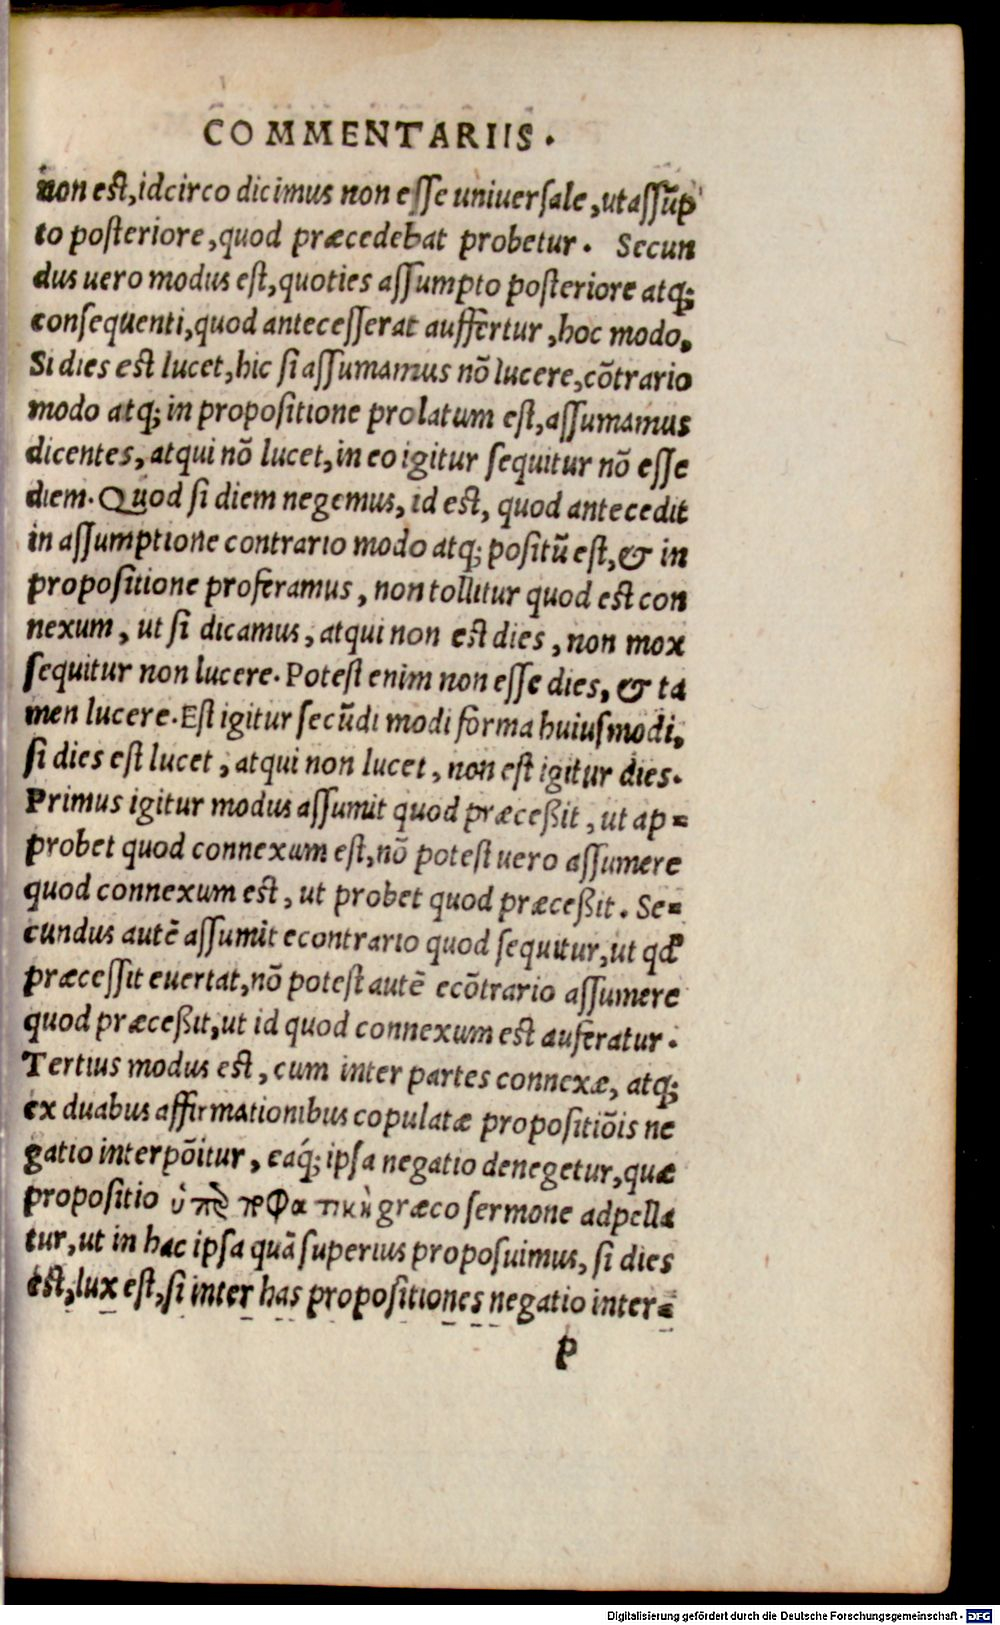 COMMENTARIIS.
non est, idcirco dicimus non esse uniuersale, ut assũp
to posteriore, quod præcedebat probetur. Secun
dus uero modus est, quoties assumpto posteriore atq;
consequenti, quod antecesserat auffertur, hoc modo,
Si dies est lucet, hic si assumamus nõ lucere, cõtrario
modo atq; in propositione prolatum est, assumamus
dicentes, atqui nõ lucet, in eo igitur sequitur nõ esse
diem. Quod si diem negemus, id est, quod antecedit
in assumptione contrario modo atq; positũ est, & in
propositione proferamus, non tollitur quod est con
nexum, ut si dicamus, atqui non est dies, non mox
sequitur non lucere. Potest enim non esse dies, & ta
men lucere. Est igitur secũdi modi forma huiusmodi,
si dies est lucet, atqui non lucet, non est igitur dies.
Primus igitur modus assumit quod præceßit, ut ap=
probet quod connexum est, nõ potest uero assumere
quod connexum est, ut probet quod præceßit. Se=
cundus autẽ assumit econtrario quod sequitur, ut qđ
præcessit euertat, nõ potest autẽ ecõtrario assumere
quod præceßit, ut id quod connexum est auferatur.
Tertius modus est, cum inter partes connexæ, atq;
ex duabus affirmationibus copulatæ propositiõis ne
gatio interpõitur, eáq; ipsa negatio denegetur, quæ
propositio græco sermone adpella
tur, ut in hac ipsa quã superius proposuimus, si dies
est, lux est, si inter has propositiones negatio inter=
P
Digitalisierung gefördert durch die Deutsche Forschungsgemeinschaft - DFG